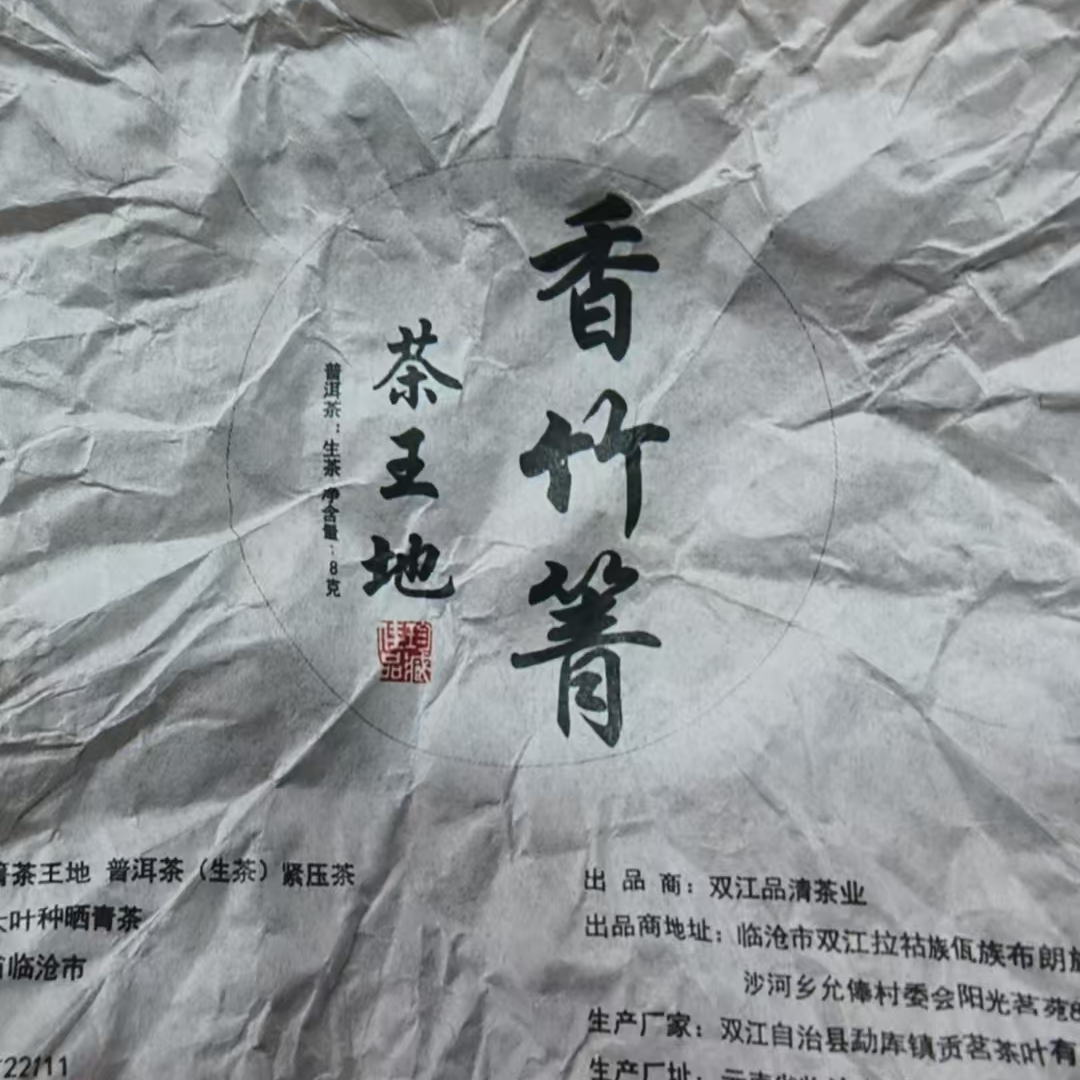 香竹箐
茶王地
普洱茶：生茶 净含量：8克
珍藏佳品
箐茶王地 普洱茶（生茶）紧压茶
大叶种晒青茶
省临沧市
22/11
出品商：双江品清茶业
出品商地址：临沧市双江拉祜族佤族布朗族
沙河乡允俸村委会阳光茗苑8
生产厂家：双江自治县勐库镇贡茗茶叶有
生产厂址：云南省临